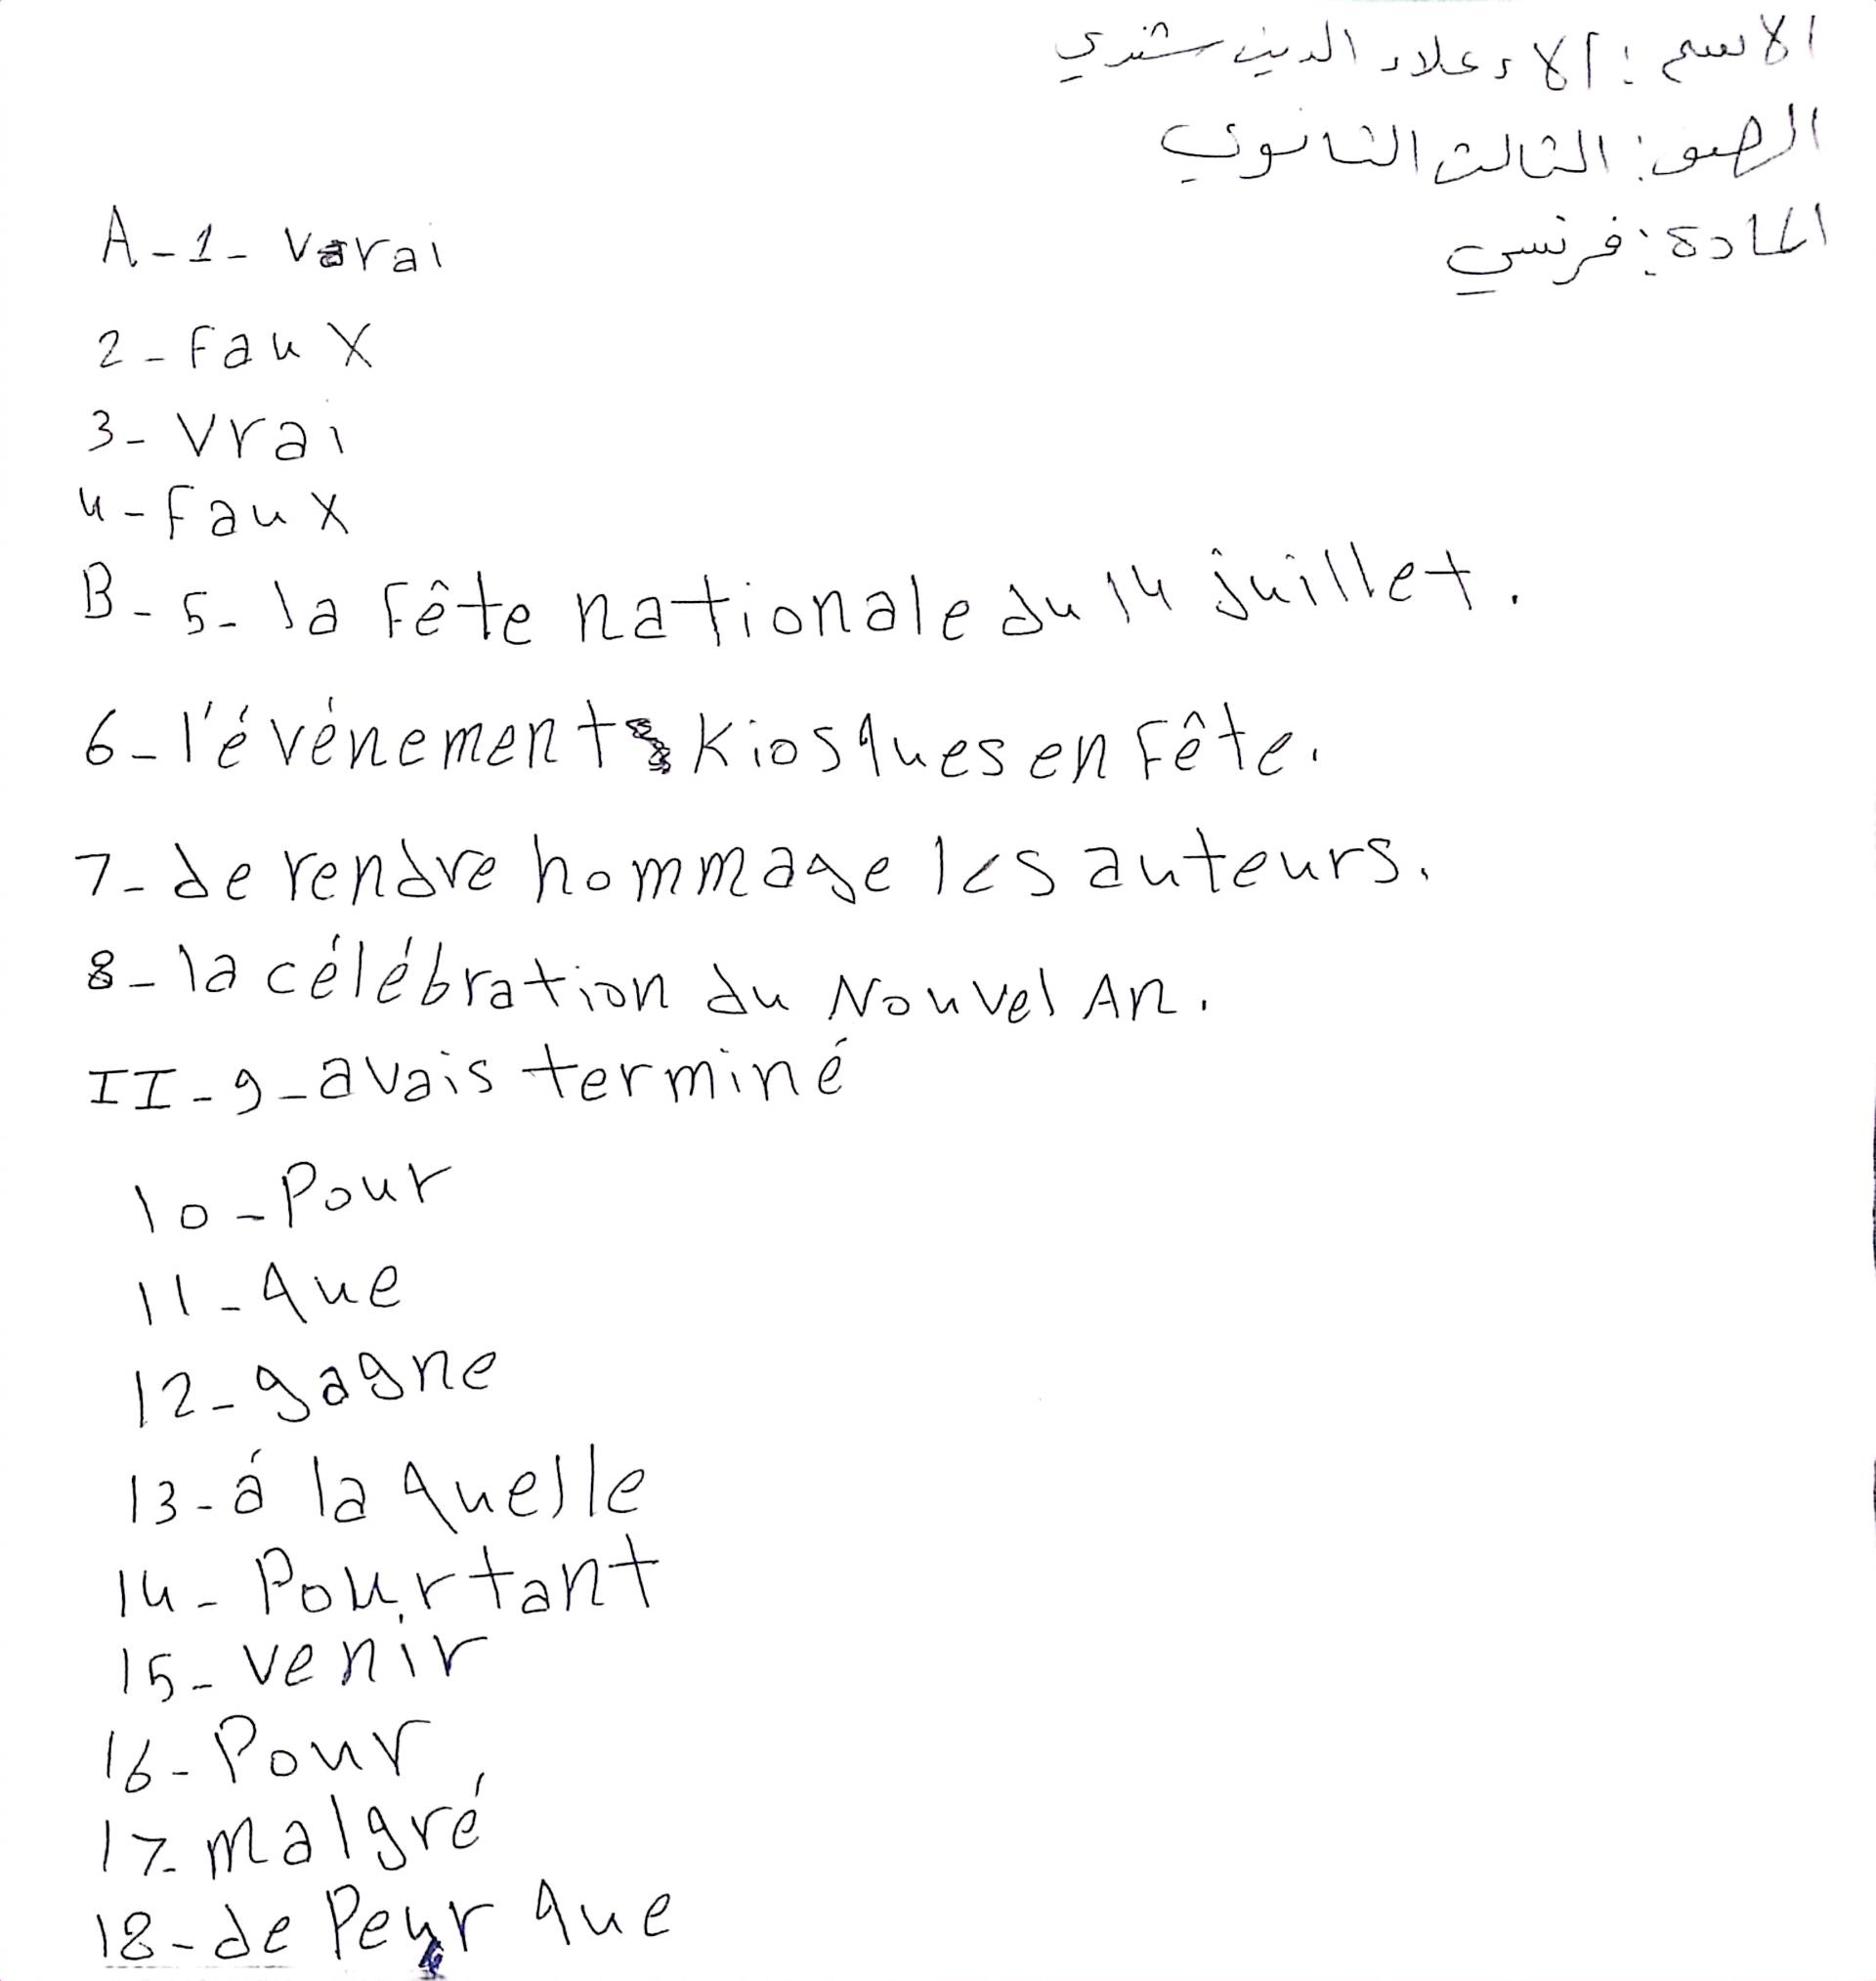 الاسم: آلاء علاء الدين شندي
الصف: الثالث الثانوي
المادة: فرنسي
A-1- varai
2-Faux
3- Vrai
4-Faux
B-5- la Fête nationale du 14 juillet.
6-l'événement kiosques en Fête.
7-de rendre hommage les auteurs.
8-la célébration du Nouvel An.
II-9-avais terminé
10-Pour
11-que
12-gagne
13-á laquelle
14-Pourtant
15-venir
16-Pour
17-malgré
18-de Peur que